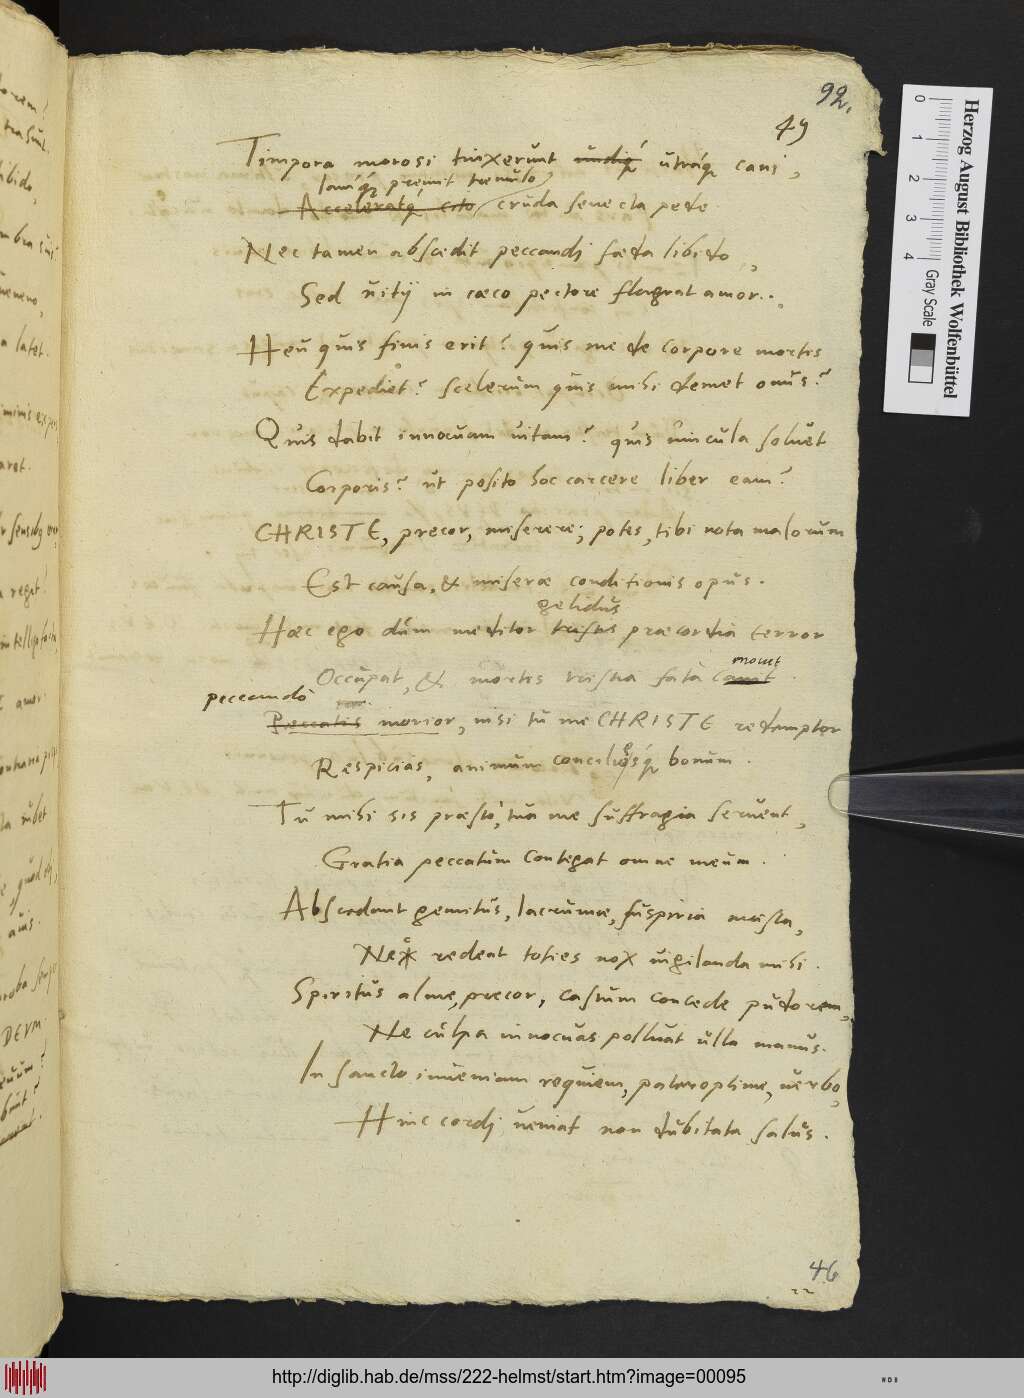 92.
49
Timpora morosi tinxerunt undiq́ utráq cani,
Iamq́q premit tremulo
Acceleratq́ cito cruda senecta pede.
Nec tamen abscedit peccandj fœda libido,
Sed uitij in cæco pectore flagrat amor.
Heu quis finis erit? quis me de corpore mortis
Expediet? scelerum quis mihi demet onus?
Quis dabit innocuam uitam? quis uincula soluet
Corporis? ut posito hoc carcere liber eam?
CHRISTE, precor, miserere; potes, tibi nota malorum
Est causa, & miseræ conditionis opus.
gelidus
Hæc ego dum meditor tristis præcordia terror
mouet
Occupat, & mortis tristia fata canit.
peccando
Peccatis morior, nisi tu me CHRISTE redemptor
Respicias, animum concilieśq bonum.
Tu mihi sis præsto, tua me suffragia seruent,
Gratia peccatum contegat omne meum.
Abscedant gemitus, lacrumæ, suspiria mæsta,
Nec redeat toties nox uigilanda mihi.
Spiritus alme, precor, castum concede pudorem,
Ne culpa innocuas polluat ulla manus.
In sancto inueniam requiem, pater optime, uerbo,
Hinc cordj ueniat non dubitata salus.
46
22
Herzog August Bibliothek Wolfenbüttel
0 1 2 3 4 Gray Scale
http://diglib.hab.de/mss/222-helmst/start.htm?image=00095